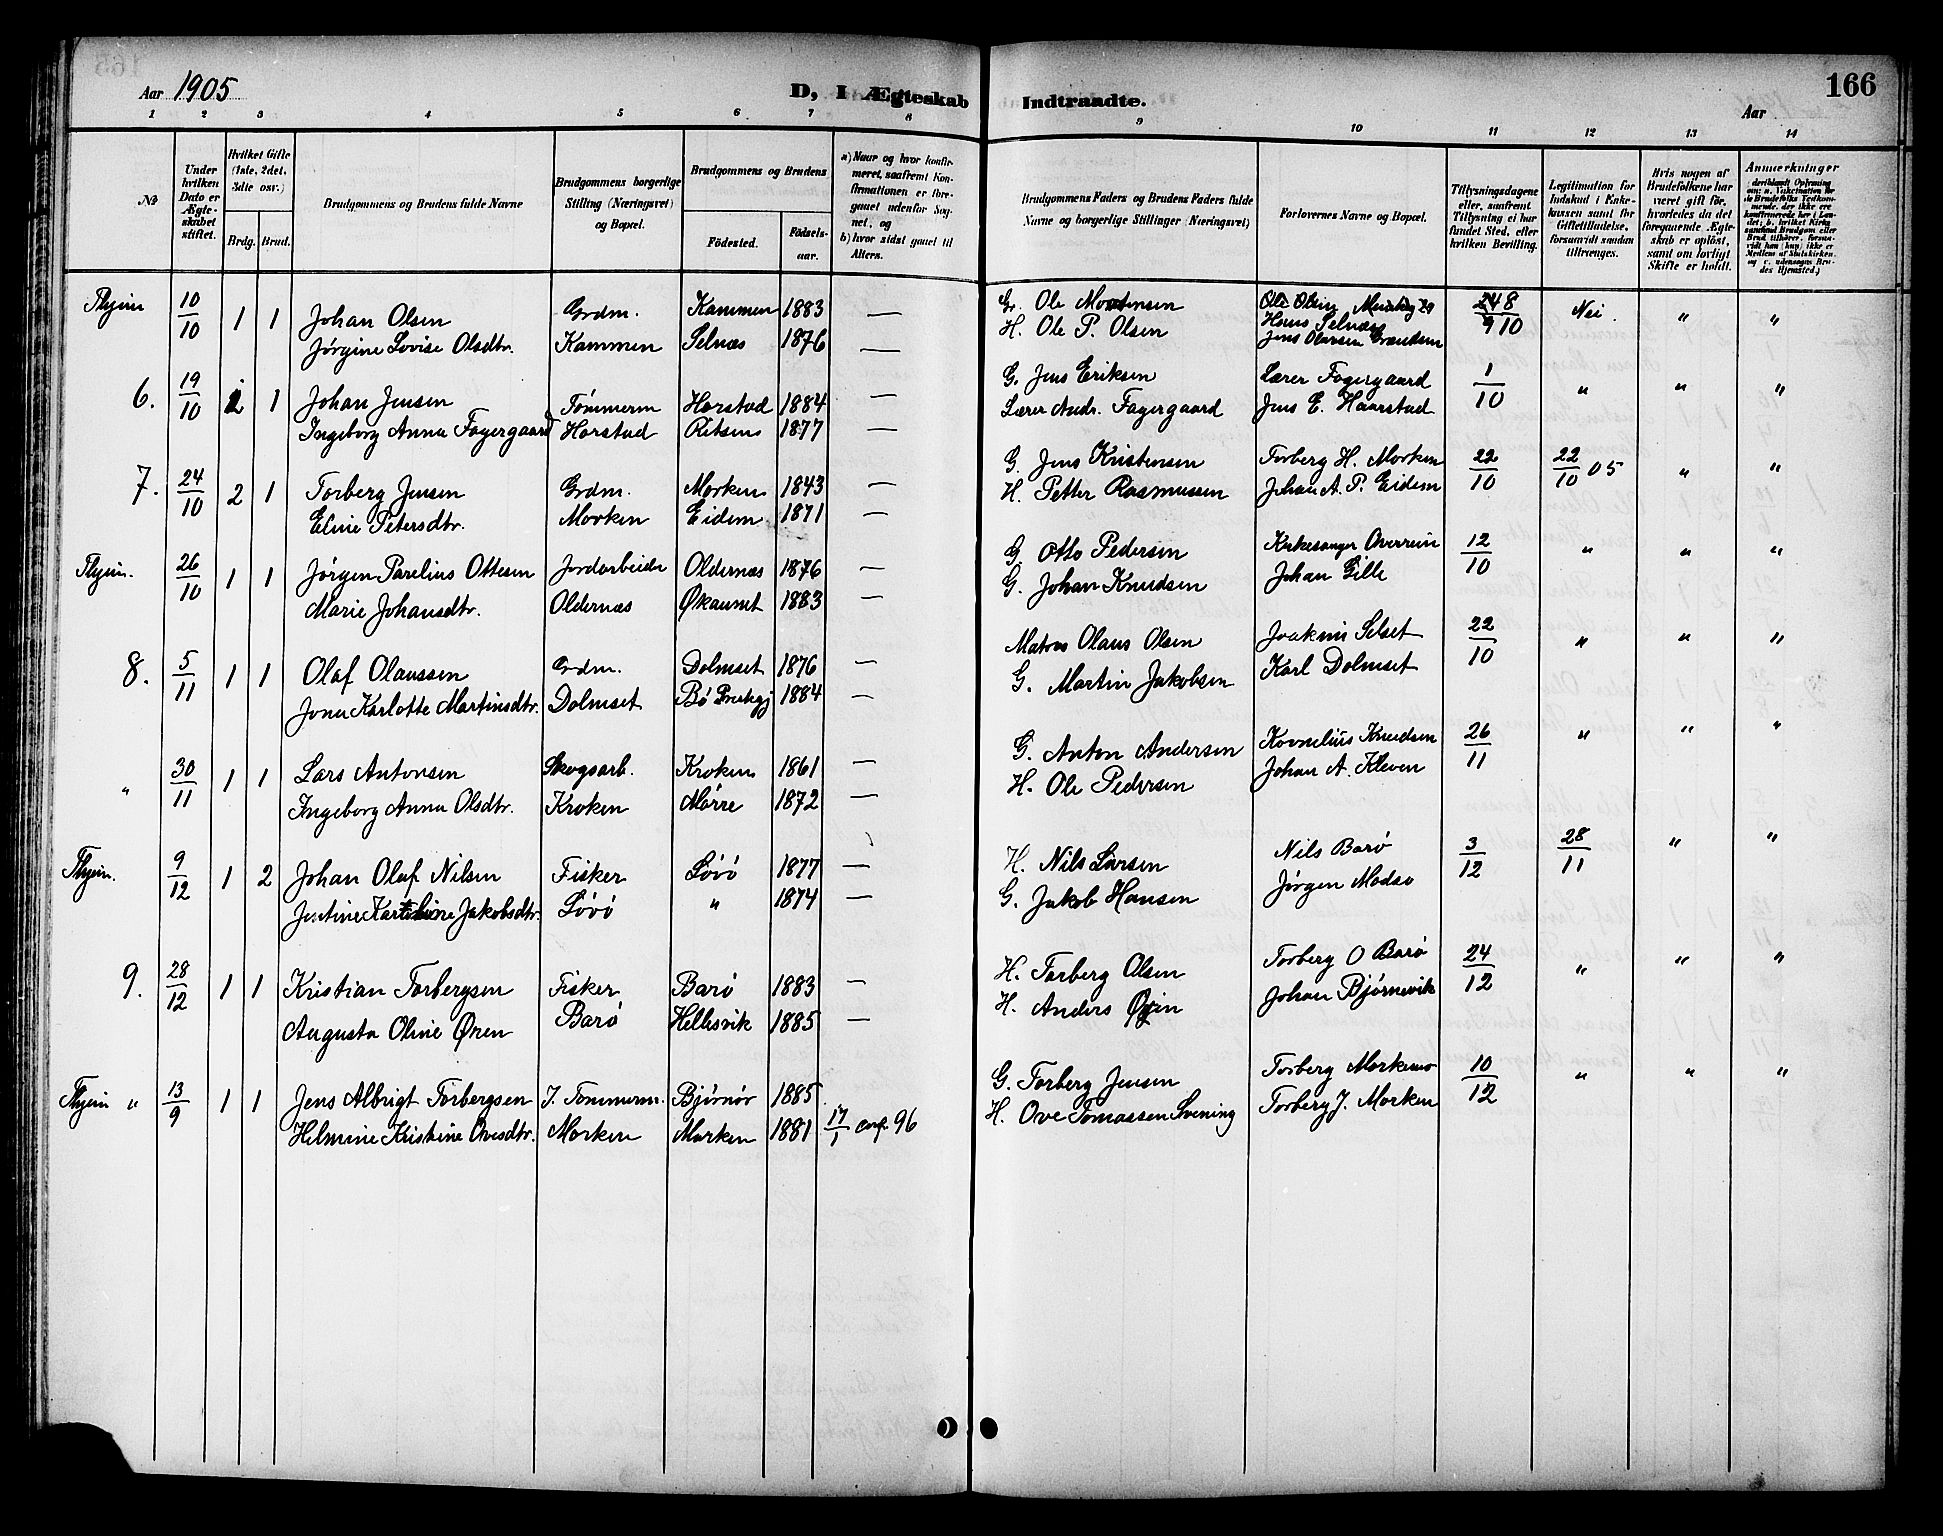 Aar 1905 D, I Ægteskab Indtraadte. Aar 166
1 2 3 4 5 6 7 8 9 10 11 12 13 14
No
Under hvilken Dato er Ægteskabet stiftet.
Hvilket Gifte (1ste, 2det, 3die osv.)
Brdg. Brud.
Brudgommens og Brudens fulde Navne
Brudgommens borgerlige Stilling (Næringsvei) og Bopæl.
Brudgommens og Brudens
Födested. Födselsaar.
a) Naar og hvor konfirmeret, saafremt Konfirmationen er foregaaet udenfor Sognet, og
b) hvor sidst gaaet til Alters.
Brudgommens Faders og Brudens Faders fulde Navne og borgerlige Stillinger (Næringsvei)
Forlovernes Navne og Bopæl.
Tillysningsdagene eller, saafremt Tillysning ei har fundet Sted, efter hvilken Bevilling.
Legitimation for Indskud i Enkekassen samt for Giftetilladelse, forsaavidt saadan tiltrænges.
Hvis nogen af Brudefolkene har været gift før, hvorledes da det foregaaende Ægteskab er oplöst, samt om lovligt Skifte er holdt.
Anmærkninger
10/10 1 1 Johan Olsen Grdm. Kammen 1883 — G. Ole Mortensen 10 Nei. " "
Jørgine Lovise Olsdtr. Kammen Selnæs 1876 — H. Ole P. Olsen Hans Selnæs
Jens Olausen
6. 19/10 2 1 Johan Jensen Tömmerm Harstad 1884 — G. Jens Eriksen Lærer Fagergaard 1/10 " " "
Ingeborg Anna Fagergaard Harstad Ritsem 1877 — Lærer Andr. Fagergaard Jens E. Haarstad
7. 24/10 2 1 Torberg Jensen Grdm. Morken 1843 — G. Jens Kristensen Torberg H. Morken 22/10 22/10 05 " "
Eline Petersdtr. Morken Eidem 1871 — H. Petter Rasmussen Johan A. P. Eidem
26/10 1 1 Jørgen Parelius Ottesen Jordarbeider Oldernæs 1876 — G. Otto Pedersen Kirkesanger Overrein 12/10 " " "
Marie Johansdtr. Oldernæs 1883 — G. Johan Knudsen Johan Gille
8. 5/11 1 1 Olaf Olaussen Grdm. Dolmset 1876 — Matros Olaus Olsen Joakim Selset 22/10 " " "
Karlotte Martinsdtr. Dolmset Bö 1884 — G. Martin Jakobsen Karl Dolmset
" 30/11 1 1 Lars Antonsen Skogsarb. Kroken 1861 — G. Anton Andersen Kornelius Knudsen 26/11 " " "
Ingeborg Anna Olsdtr. Kroken Mörre 1872 — H. Ole Pedersen Johan A. Kleven
9/12 1 2 Johan Olaf Nilsen Fisker Lövö 1877 — H. Nils Larsen Nils Barö 3/12 28/11 " "
Justine Jakobsdtr. Lövö " 1874 — G. Jakob Hansen Jørgen Madsø
9. 28/12 1 1 Kristian Torbergsen Fisker Barö 1883 — H. Torberg Olsen Torberg O Barö 24/12 " " "
Augusta Oline Øien Barö Hellesvik 1885 — H. Anders Øien Johan Bjørnevik
" 13/9 1 1 Jens Albrigt Torbergsen J. Tömmerm. Bjørnør 1885 G. Torberg Jensen Torberg Morkemo 10/12 " " "
Helmine Kristine Ovesdtr. Morken Morken 1881 17/1 conf. 96 H. Ove Tomassen Svening Torberg J. Morken